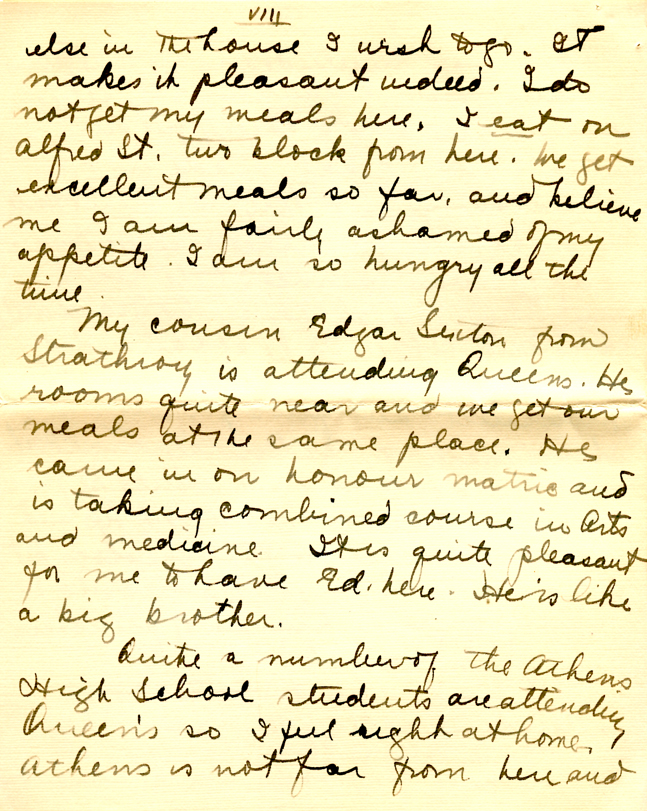 VIII
else in the house I wish to go. It
makes it pleasant indeed. I do
not get my meals here, I eat on
Alfred St. two block from here. We get
excellent meals so far, and believe
me I am fairly ashamed of my
appetite. I am so hungry all the
time.
My cousin Edgar Sexton from
Strathroy is attending Queens. He
rooms quite near and we get our
meals at the same place. He
came in on honour matric and
is taking combined course in Arts
and medicine. It is quite pleasant
for me to have Ed. here. He is like
a big brother.
Quite a number of the Athens
High School students are attending
Queen's so I feel right at home.
Athens is not far from here and